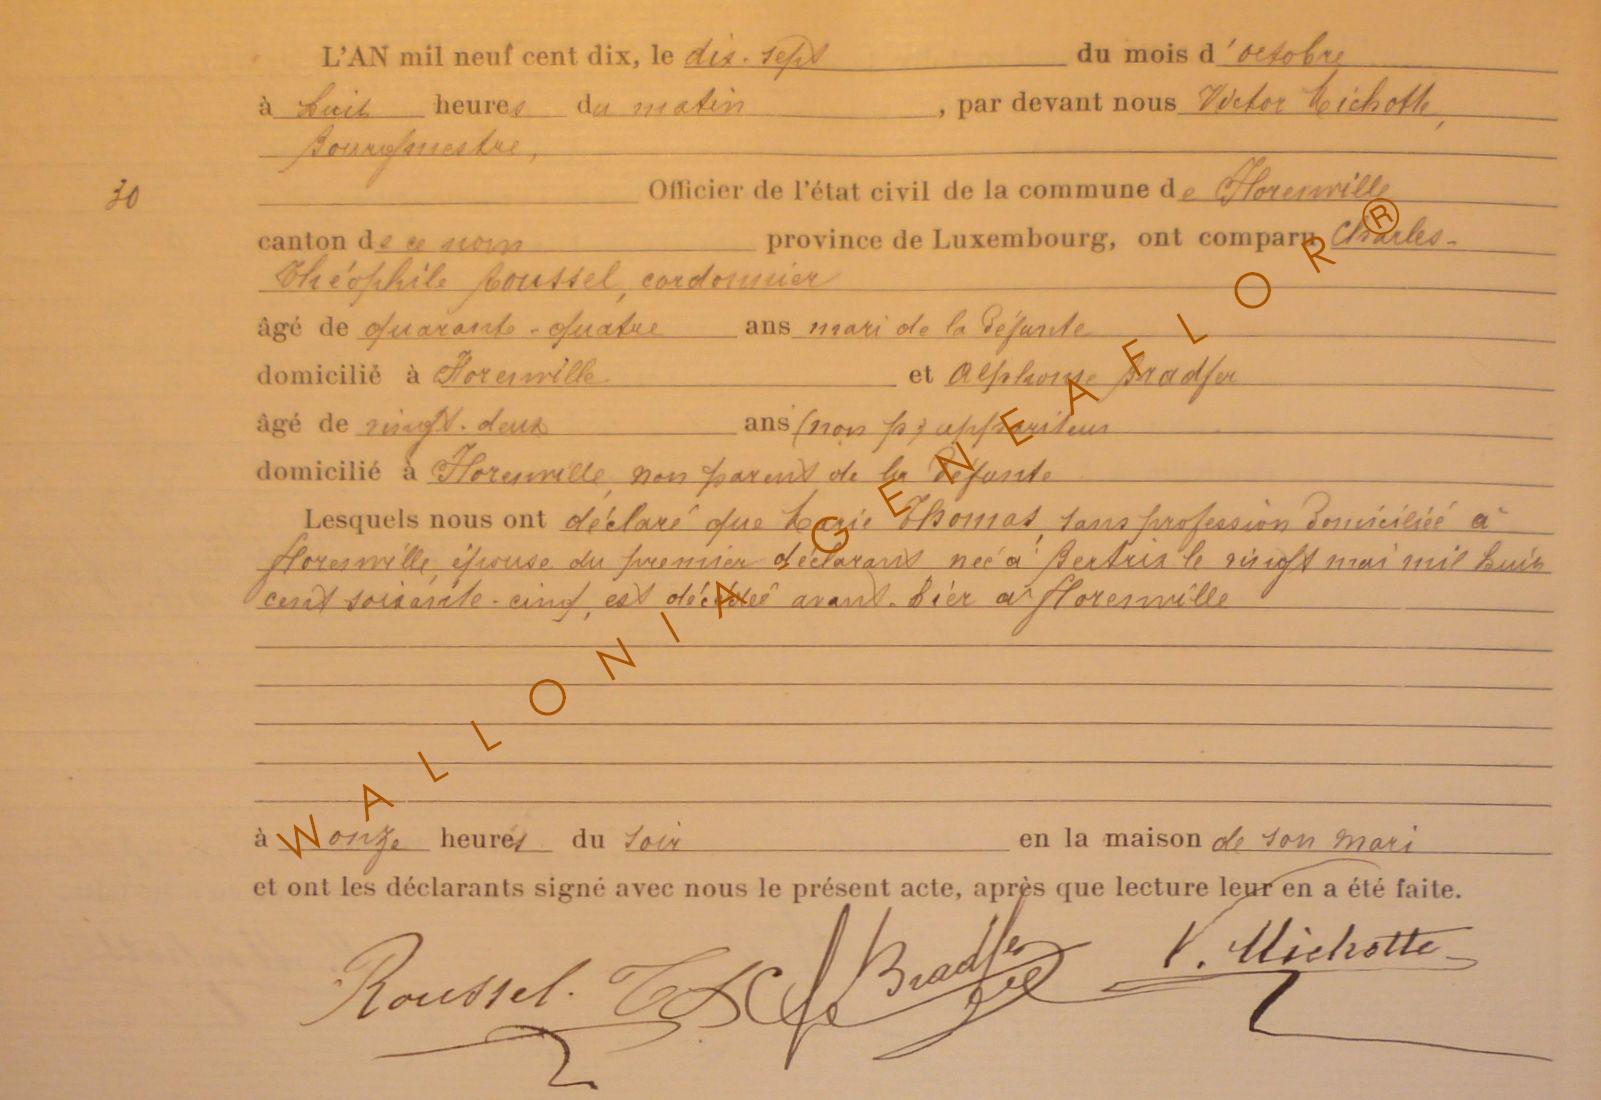 L'AN mil neuf cent dix, le dix-sept du mois d'octobre
à huit heures du matin, par devant nous Victor Michotte,
Bourgmestre,
30 Officier de l'état civil de la commune de Florenville
canton de ce nom province de Luxembourg, ont comparu Charles-
Théophile Roussel, cordonnier
âgé de quarante-quatre ans mari de la défunte
domicilié à Florenville et Alphonse Bradfer
âgé de vingt-deux ans (non p) appariteur
domicilié à Florenville, non parent de la défunte
Lesquels nous ont déclaré que Marie Thomas, sans profession domiciliée à
Florenville épouse du premier déclarant née à Bertrix le vingt mai mil huit
cent soixante-cinq, est décédée avant-hier à Florenville
à onze heures du soir en la maison de son mari
et ont les déclarants signé avec nous le présent acte, après que lecture leur en a été faite.
Roussel. Bradfer V. Michotte
WALLONIA GENEAFLOR®